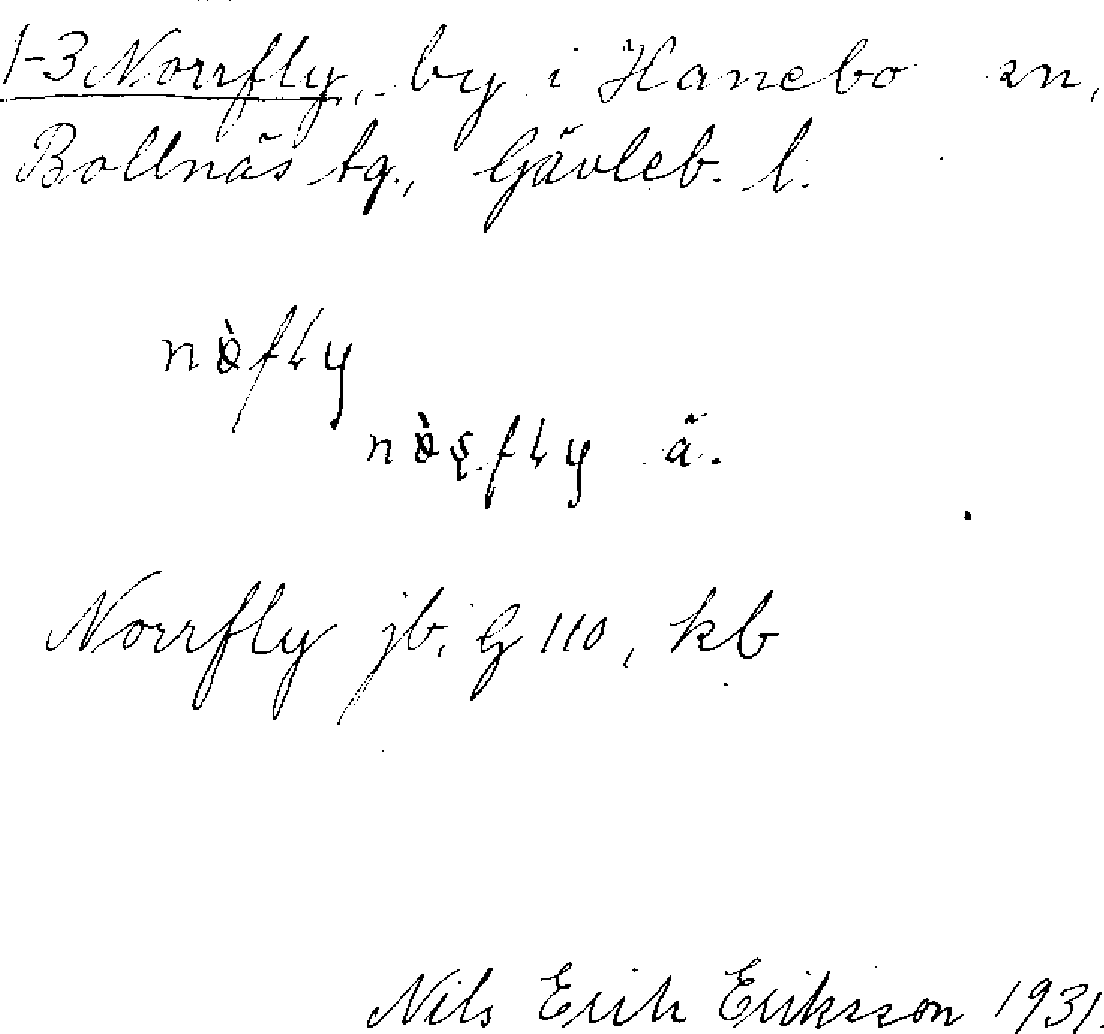 1-3 Norrfly, by i Hanebo sn,
Bollnäs tg., Gävleb. l.
nòfly
ä.
Norrfly jb. G 110, kb
Nils Erik Eriksson 1931